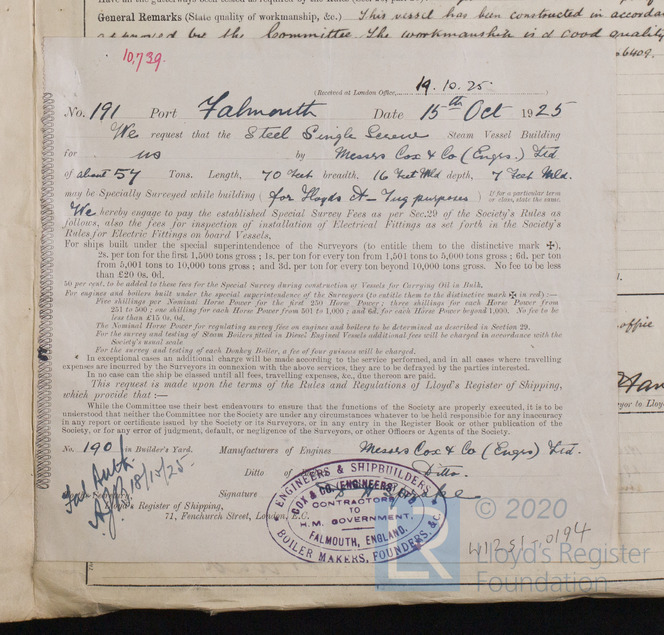 General Remarks (State quality of workmanship, &c.) This vessel has been constructed in accorda
approved by the Committee. The workmanship is of good quality
6409.
10,739
(Received at London Office, 19.10.25.)
No. 191 Port Falmouth Date 15th Oct 1925
We request that the Steel Single Screw Steam Vessel Building
for us by Messrs Cox & Co (Engrs.) Ltd
of about 57 Tons. Length, 70 Feet breadth, 16 Feet Mld depth, 7 Feet Mld.
may be Specially Surveyed while building (for Lloyds A- Tug purposes) If for a particular term or class, state the same.
We hereby engage to pay the established Special Survey Fees as per Sec. 29 of the Society's Rules as
follows, also the fees for inspection of installation of Electrical Fittings as set forth in the Society's
Rules for Electric Fittings on board Vessels,
For ships built under the special superintendence of the Surveyors (to entitle them to the distinctive mark ✠),
2s. per ton for the first 1,500 tons gross; 1s. per ton for every ton from 1,501 to 5,000 tons gross; 6d. per ton
from 5,001 to 10,000 tons gross; and 3d. per ton for every ton beyond 10,000 tons gross. No fee to be less
than £20 0s. 0d.
50 per cent. to be added to these fees for the Special Survey during construction of Vessels for Carrying Oil in Bulk.
For engines and boilers built under the special superintendence of the Surveyors (to entitle them to the distinctive mark ✠ in red) :—
Five shillings per Nominal Horse Power for the first 250 Horse Power; three shillings for each Horse Power from
251 to 500; one shilling for each Horse Power from 501 to 1,000; and 6d. for each Horse Power beyond 1,000. No fee to be
less than £15 0s. 0d.
The Nominal Horse Power for regulating survey fees on engines and boilers to be determined as described in Section 29.
For the survey and testing of Steam Boilers fitted in Diesel Engined Vessels additional fees will be charged in accordance with the
Society's usual scale.
For the survey and testing of each Donkey Boiler, a fee of four guineas will be charged.
In exceptional cases an additional charge will be made according to the service performed, and in all cases where travelling
expenses are incurred by the Surveyors in connexion with the above services, they are to be defrayed by the parties interested.
In no case can the ship be classed until all fees, travelling expenses, &c., due thereon are paid.
This request is made upon the terms of the Rules and Regulations of Lloyd's Register of Shipping,
which provide that :—
While the Committee use their best endeavours to ensure that the functions of the Society are properly executed, it is to be
understood that neither the Committee nor the Society are under any circumstances whatever to be held responsible for any inaccuracy
in any report or certificate issued by the Society or its Surveyors, or in any entry in the Register Book or other publication of the
Society, or for any error of judgment, default, or negligence of the Surveyors, or other Officers or Agents of the Society.
No. 190 in Builder's Yard. Manufacturers of Engines Messrs Cox & Co (Engrs) Ltd.
Ditto of Ditto.
Signature
Lloyd's Register of Shipping,
71, Fenchurch Street, London, E.C.
18/10/25.
ENGINEERS & SHIPBUILDERS
COX & CO. (ENGINEERS) LTD
CONTRACTORS
TO
H.M. GOVERNMENT.
FALMOUTH, ENGLAND.
BOILER MAKERS, FOUNDERS, &c.
office
Han
veyor to Lloyd
W1251-0194
© 2020
LR
Lloyd's Register
Foundation